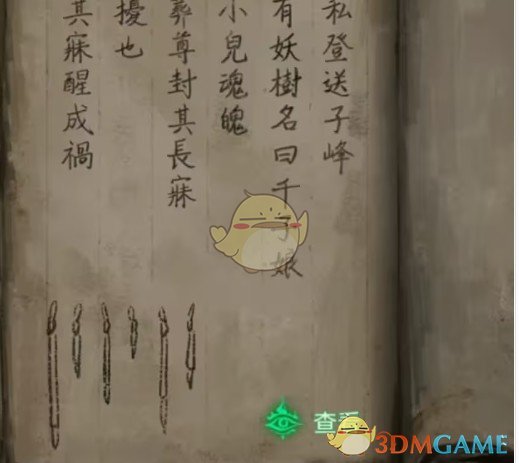 私登送子峰
有妖樹名曰千
娘
小兒魂魄
葬尊封其長寐
擾也
其寐醒成禍
查
3DMGAME